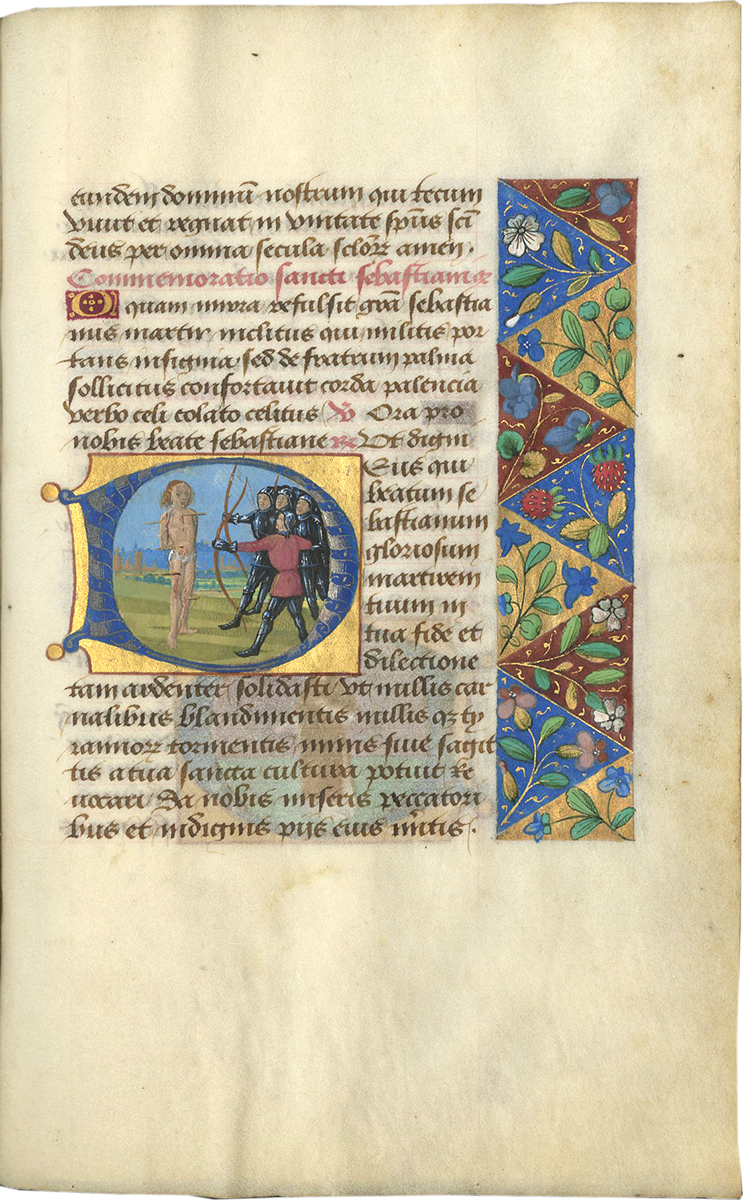 eundem dominū nostrum qui tecum
viuit et regnat in vnitate spūs sci
deus per omnia secula sclorꝝ amen.
Commemoratio sancti sebastiani āē
O quam mira refulsit grā sebastia
nus martir inclitus qui militis por
tans insignia sed de fratrum palma
sollicitus confortauit corda palencia
verbo celi colato celitus ℣ Ora pro
nobis beate sebastiane ℟ Vt digni
Deus qui
beatum se
bastianum
gloriosum
martirem
tuum in
tua fide et
dilectione
tam ardenter solidasti vt nullis car
nalibus blandimentis nullis qꝫ ty
rannorꝝ tormentis minis siue sagit
tis a tua sancta cultura potuit re
uocari Da nobis miseris peccatori
bus et indignis pijs eius m̄itis.